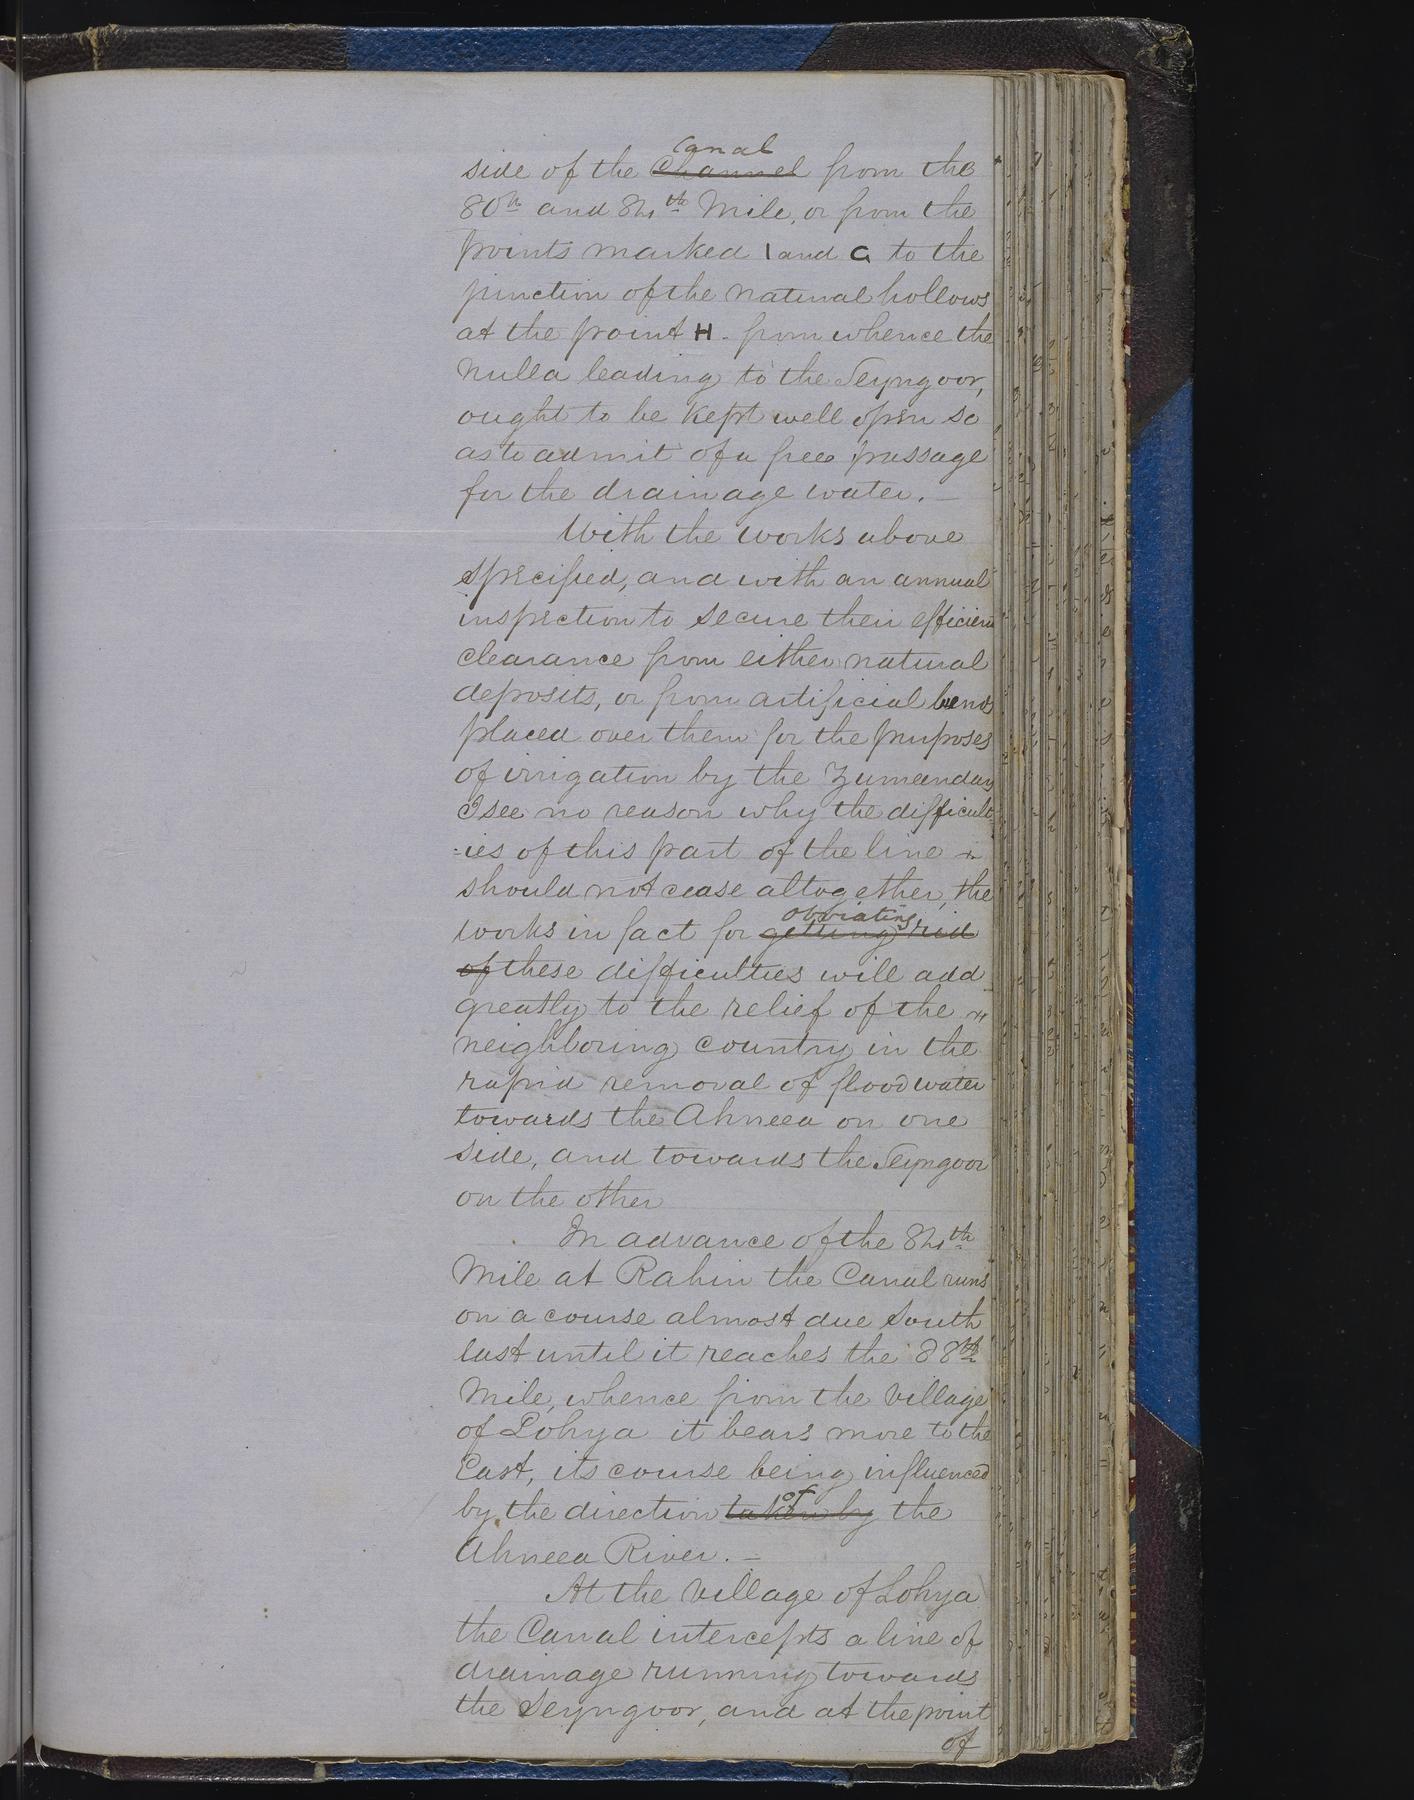 Canal
side of the channel from the
80th and 84th Mile, or from the
points marked I and G to the
junction of the natural hollows
at the point H. from whence the
Nulla leading to the Seyngoor,
ought to be kept well open so
as to admit of a free passage
for the drainage water. —
With the works above
specified, and with an annual
inspection to secure their efficient
clearance from either natural
deposits, or from artificial bunds
placed over them for the purposes
of irrigation by the Zumeendars
I see no reason why the difficult-
-ies of this part of the line
should not cease altogether, the
obviating
works in fact for getting rid
of these difficulties will add
greatly to the relief of the
neighboring country in the
rapid removal of flood water
towards the Ahneea on one
side, and towards the Seyngoor
on the other
In advance of the 84th
Mile at Rahin the Canal runs
on a course almost due South
East until it reaches the 88th
Mile, whence from the village
of Lohya it bears more to the
East, its course being influenced
of
by the direction taken by the
Ahneea River. —
At the village of Lohya
the Canal intercepts a line of
drainage running towards
the Seyngoor, and at the point
of